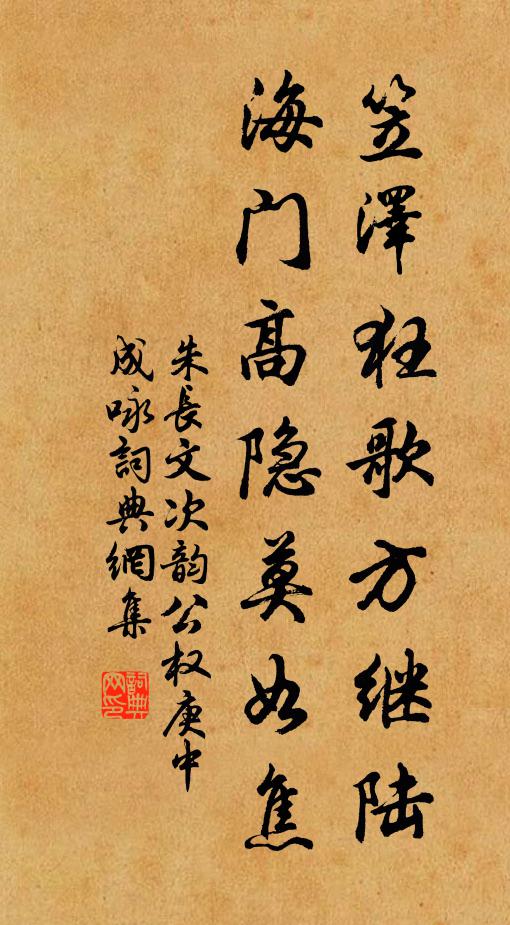 笠澤狂歌方继陆
海门高隐莫如焦
朱長文次韵公权庚中
成咏詞典網集
詞典网印